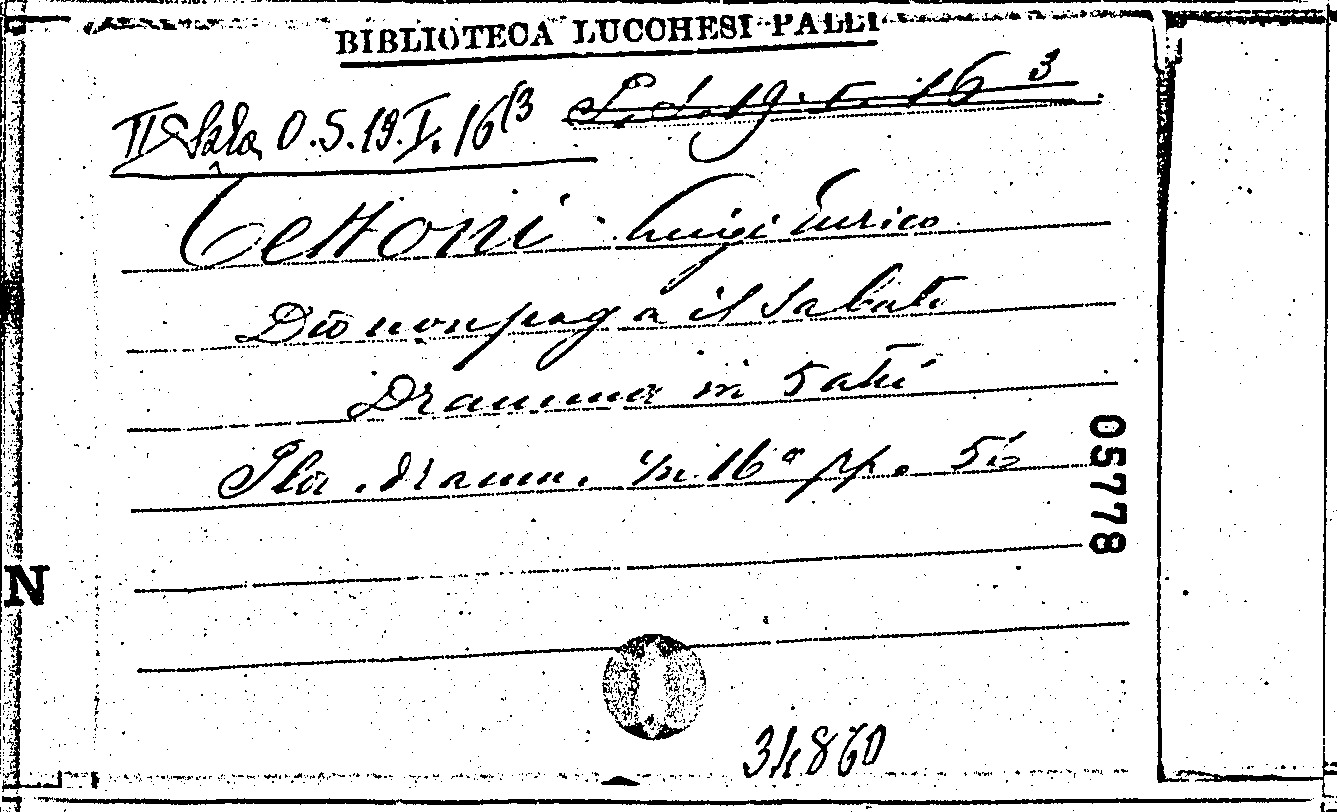 BIBLIOTECA LUCCHESI-PALLI
II Sala O.S.19.I.16(3
Tettoni Luigi Enrico
Dio non paga il Sabato
Dramma in 5 atti
in 16° pp. 56
05778
N
34860